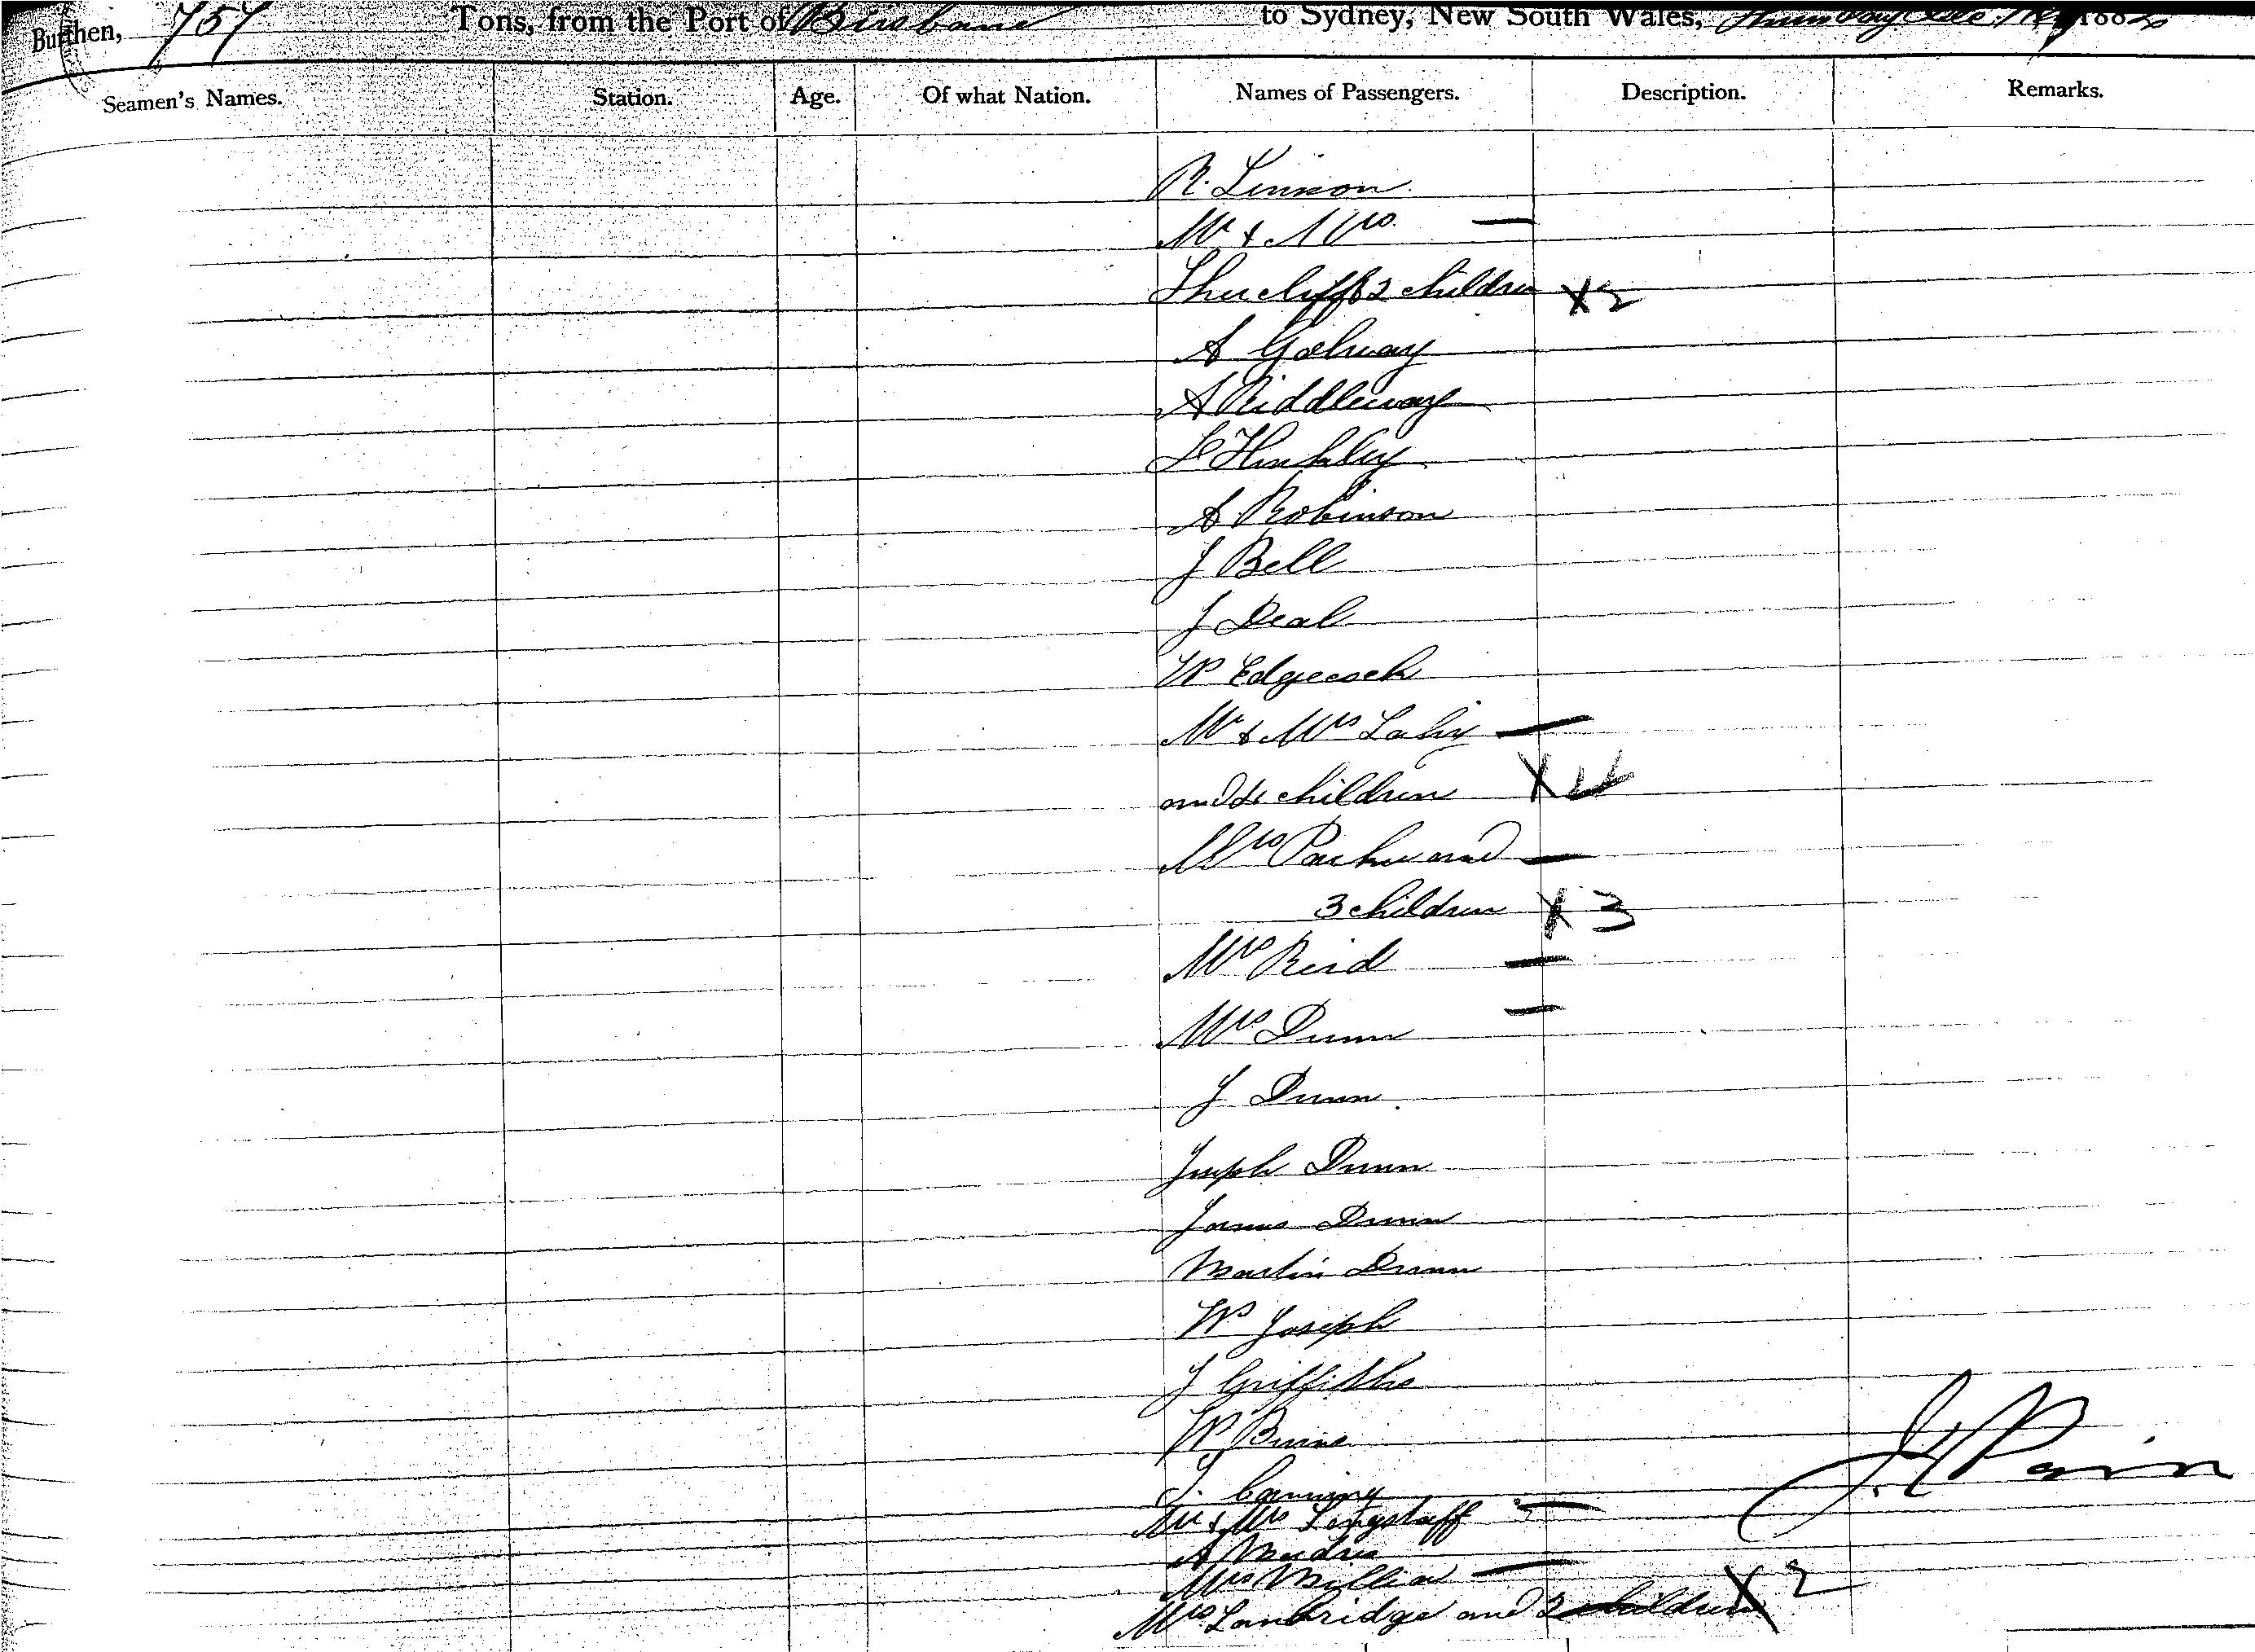 Burthen, 757 Tons, from the Port of Brisbane to Sydney, New South Wales, 188
Seamen's Names. Station. Age. Of what Nation. Names of Passengers. Description. Remarks.
R. Linnon
Mr & Mrs —
2 children X 2
A Galway
A Riddleway
Hinkley
A Robinson
J Bell
J Deal
W Edgecock
Mr & Mrs Lahy —
and 4 children X 4
Mrs Parker and —
3 children X 3
Mrs Reid —
Mrs Dunn —
J Dunn
Joseph Dunn
James Dunn
Martin Dunn
W Joseph
J Griffiths
W Burns
J. Canning
Mr & Mrs Longstaff —
A
Mrs —
Mrs Lambridge and 2 children X 2